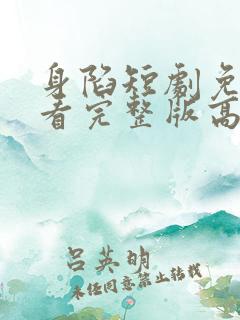 身陷短劇免
看完整版高
吕英明
未经同意禁止转载